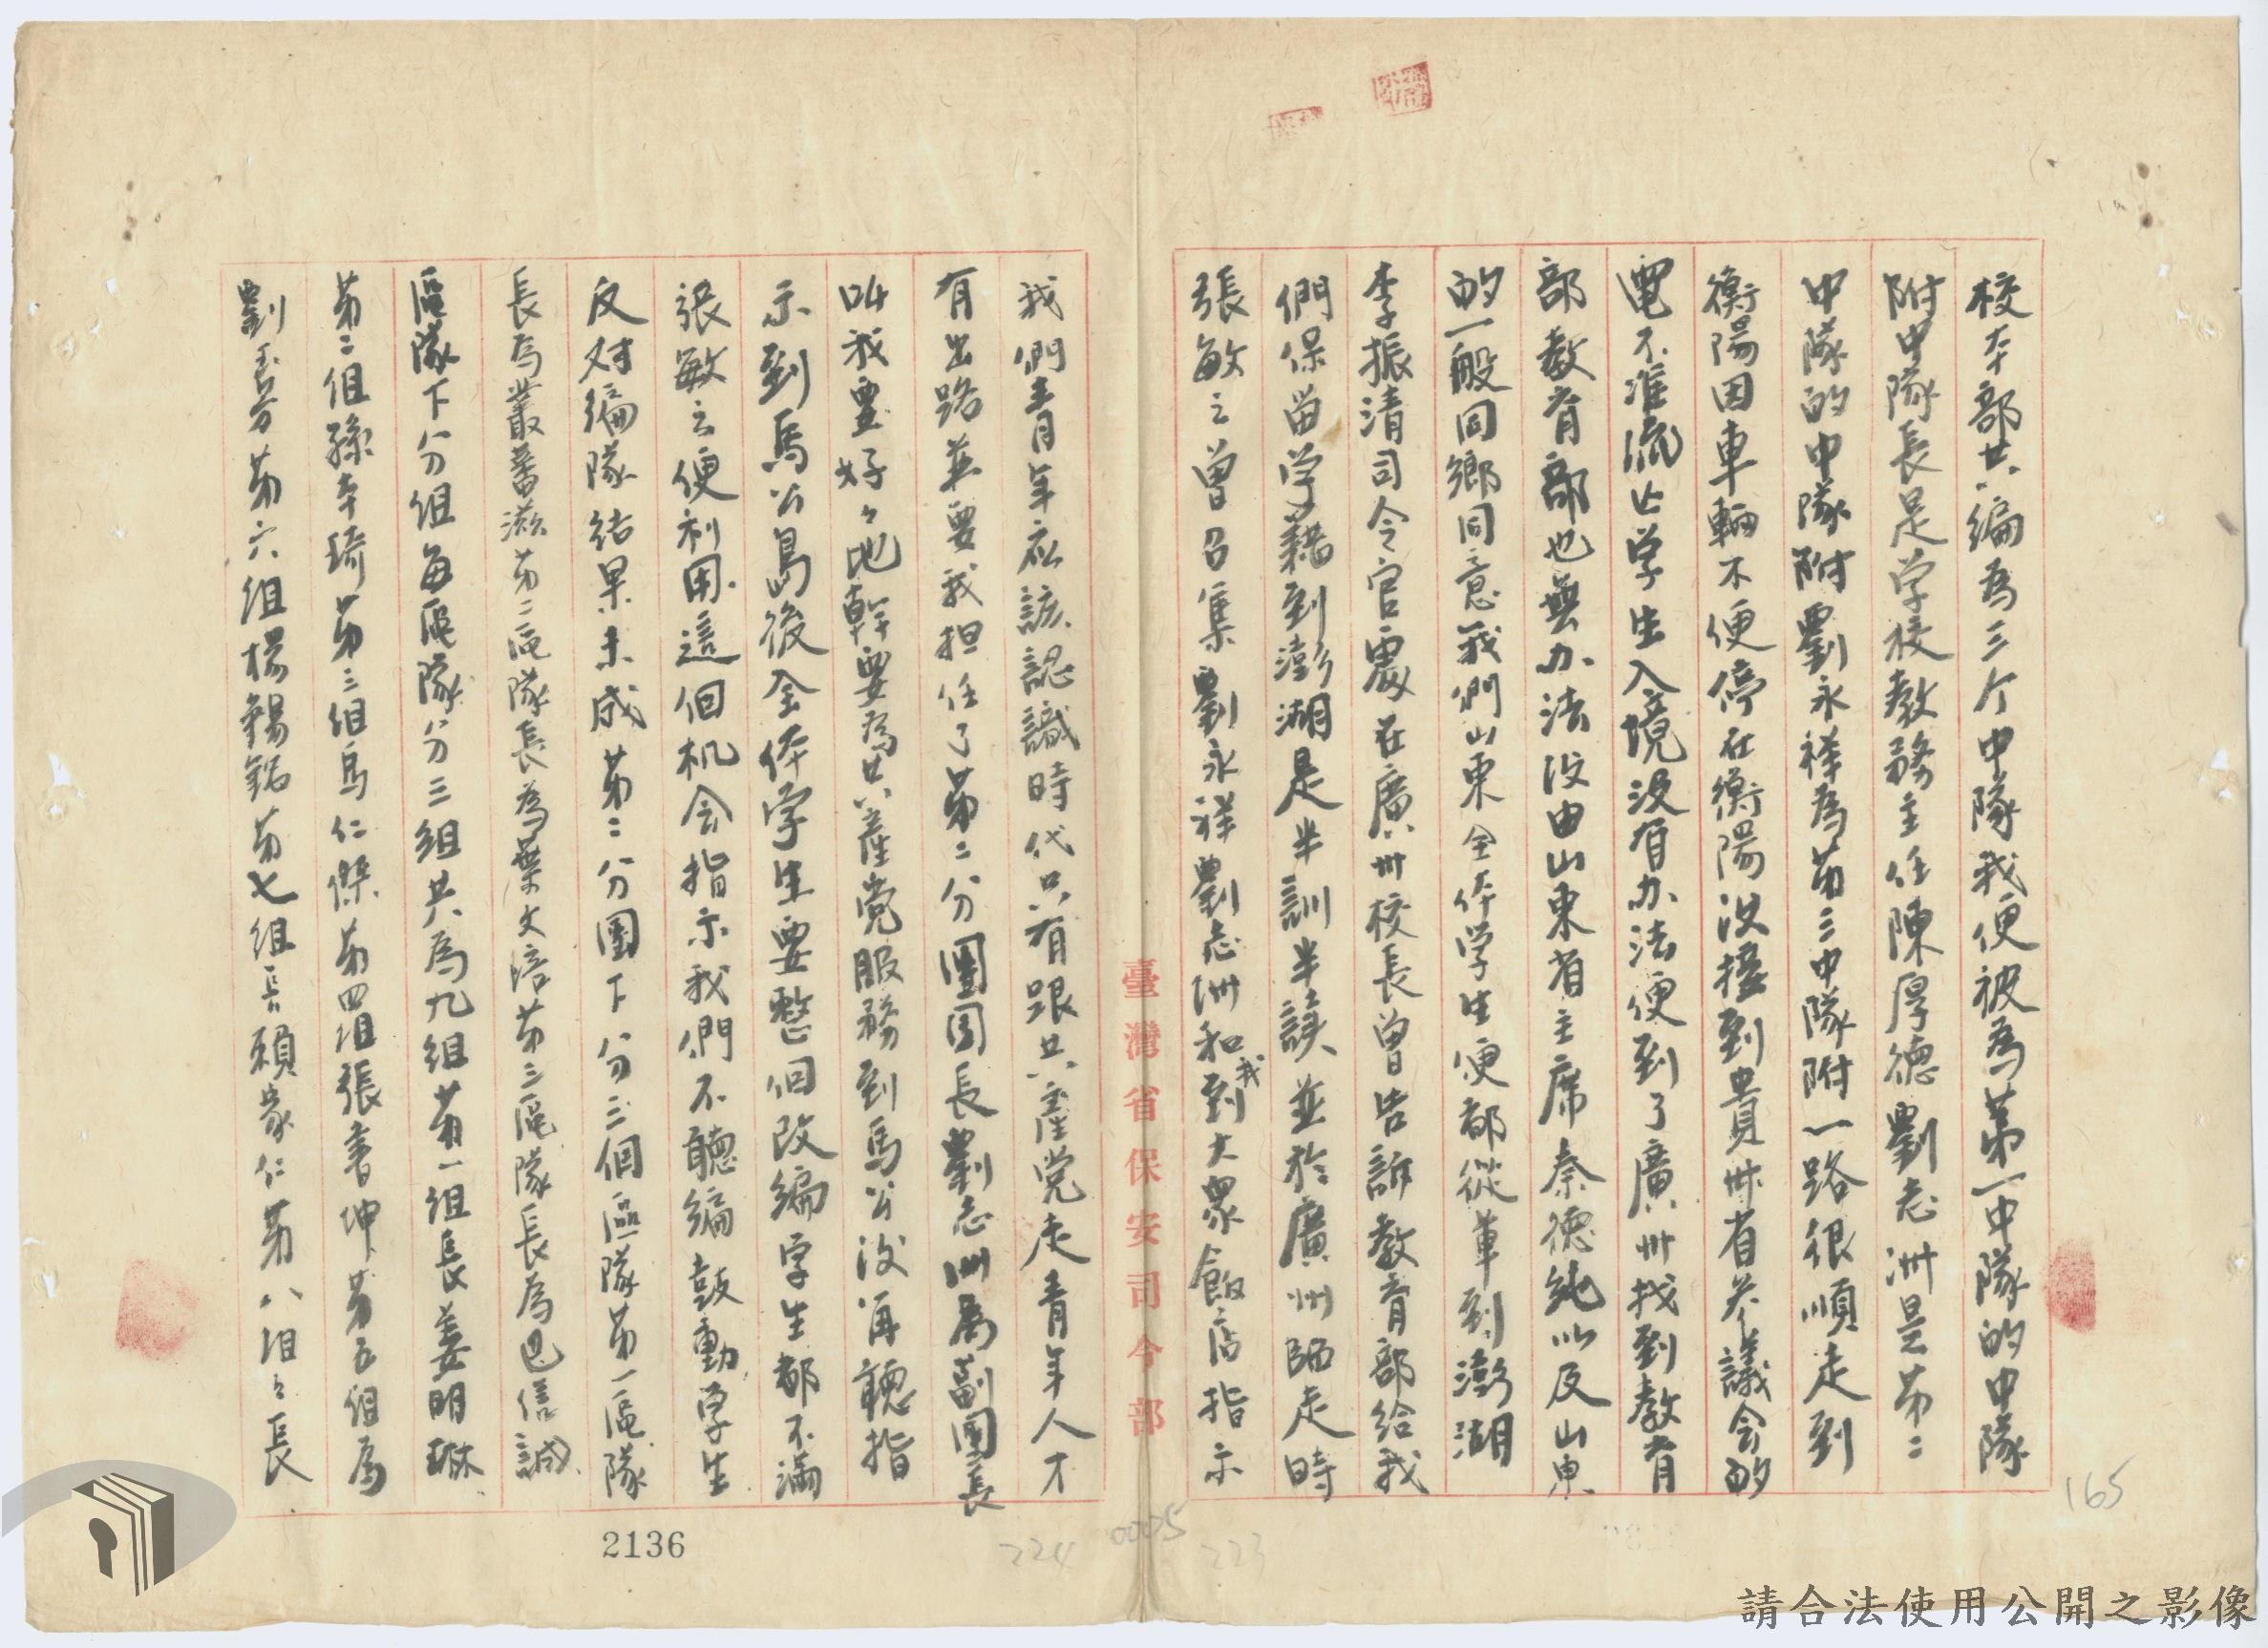 校本部共編為三个中隊我便被為第一中隊的中隊
附中隊長是学校教務主任陳厚德劉志洲是第二
中隊的中隊附劉永祥為第三中隊附一路很順走到
衡陽因車輛不便停在衡陽没接到貴州省參議会的
電不准流亡学生入境没有办法便到了廣州找到教育
部教育部也無办法没由山東省主席秦德純以及山東
的一般同鄉同意我們山東全体学生便都從軍到澎湖
李振清司令官處在廣州校長曾告訴教育部給我
們保留学籍到澎湖是半訓半讀並於廣州臨走時
張敏之曾召集劉永祥劉志洲和我到大眾飯店指示
我們青年应該認識時代只有跟共產党走青年人才
有出路並要我担任了第二分團團長劉志洲為副團長
叫我要好々地幹要為共產党服務到馬公没再聽指
示到馬公島後全体学生要整個改編学生都不滿
張敏之便利用這個机会指示我們不聽編鼓動学生
反对編隊結果未成第二分團下分三個區隊第一區隊
長為叢蕃滋第二區隊長為葉文涪第三區隊長為邑信誠
區隊下分組每區隊分三組共為九組第一組長姜明琳
第二組孫幸琦第三組烏仁傑第四組張書坤第五組為
劉玉芬第六組楊錫銘第七組長賴家仁第八組々長
臺灣省保安司令部
165
2136
0005
224
223
請合法使用公開之影像